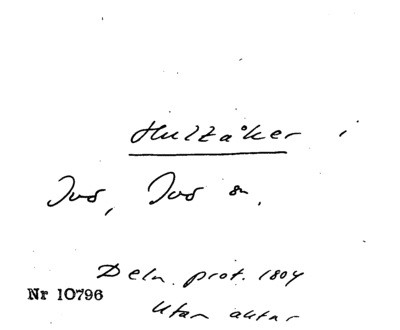 Hultåker i
Ivö, Ivö sn.
Deln. prot. 1804
Nr 10796
Utan aktnr